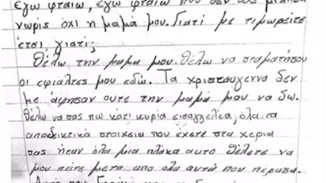 Εγώ φταίω, εγώ φταίω που δεν σας
νωρίς όχι η μαμά μου. Γιατί με τιμωρείτε
έτσι, γιατί;
Θέλω την μαμα μου. Θέλω να σταματήσου
οι εφιάλτες μου εδώ. Τα χριστουγεννα δεν
με άφησαν ουτε την μαμά μου να δω.
Θελω να σας πω κάτι κυρία εισαγγελέα, όλα τα
αποδεικτικά στοιχεια που έχετε στα χερια
σας ήταν όλα μια πλάκα αυτο θέλετε να
μου πείτε μετα απο ολα αυτά που περασα.